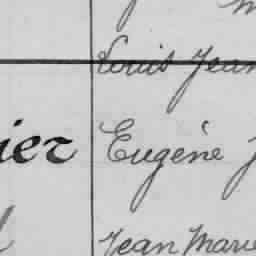 Louis Jean
ier Eugène J
Jean Marie